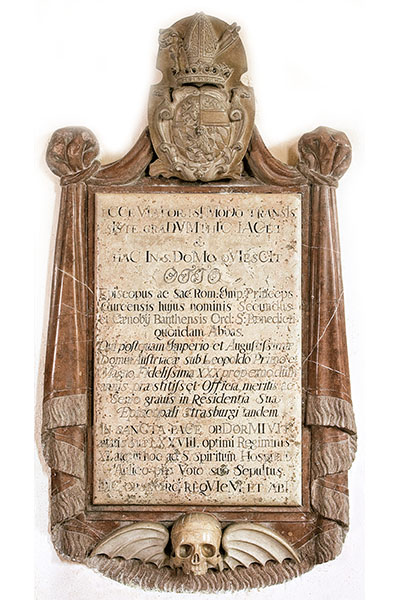 ECCE VIATOR SI MODO TRANSIS
SISTE GRADUM HIC JACET
&
HAC IN S. DOMO QVIESCIT
OTTO
Episcopus ac Sac: Rom: Imp: Princeps
Gurcensis hujus nominis Secundus
et Cænobij Banthensis Ord: S: Benedicti
quondam Abbas.
Qui postquam Imperio et Augustissimæ
Domui Austriacæ sub Leopoldo
Magno Fidelissima XXX propemodum
annis præstitisset Officia, meritis ac
Senio gravis in Residentia Sua
Episcopali Strasburgi tandem
IN SANCTA PACE OBDORMIVIT
LXXVIII, optimi Regiminis
ac hoc ad S. Spiritum
Voto suo Sepultus.
REQVIEM, ET ABI